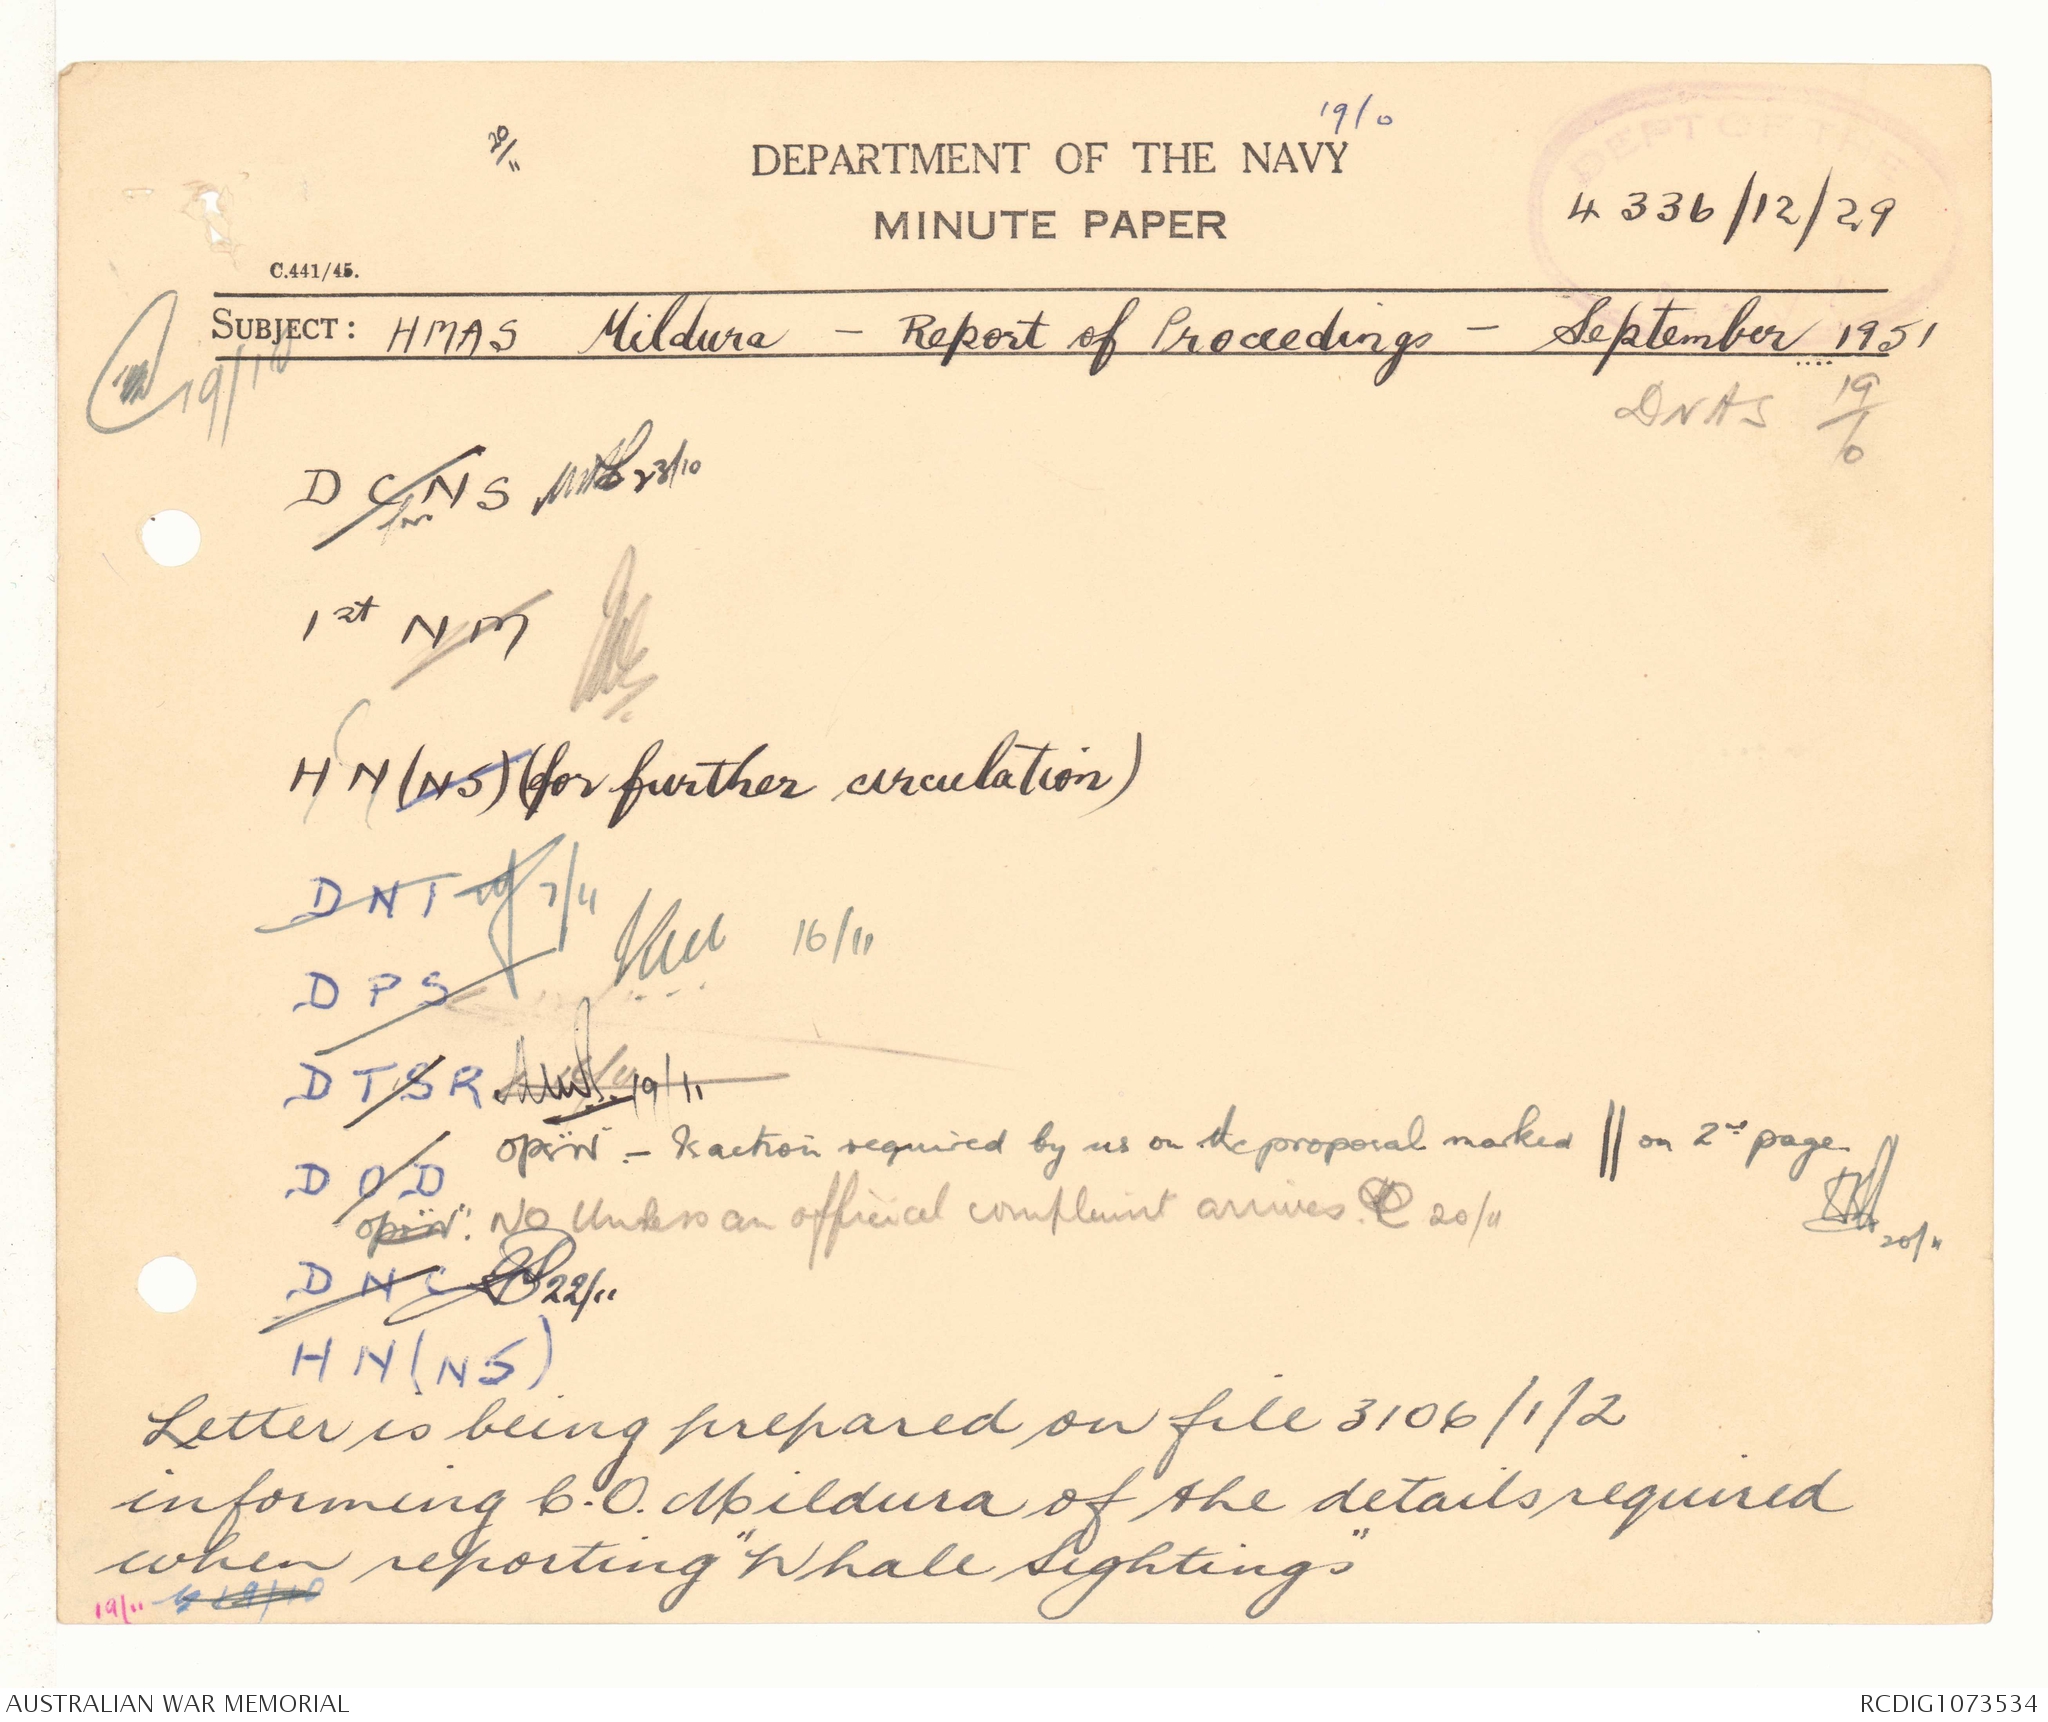 20/11
19/10
DEPARTMENT OF THE NAVY
MINUTE PAPER
DEPT OF THE
4336/12/29
C.441/45.
SUBJECT: HMAS Mildura - Report of Proceedings - September 1951
19/10
DNAS 19/10
DCNS 23/10
1st NM
HN(NS) (for further circulation)
DNI 7/11
DPS 16/11
DTSR 19/11
action required by us on the proposal marked || on 2nd page
DOD
20/11
NO Unless an official complaint arrives. 20/11
DNC 22/11
HN(NS)
Letter is being prepared on file 3106/1/2
informing C.O. Mildura of the details required
when reporting "Whale Sightings"
19/11 19/10
AUSTRALIAN WAR MEMORIAL
RCDIG1073534